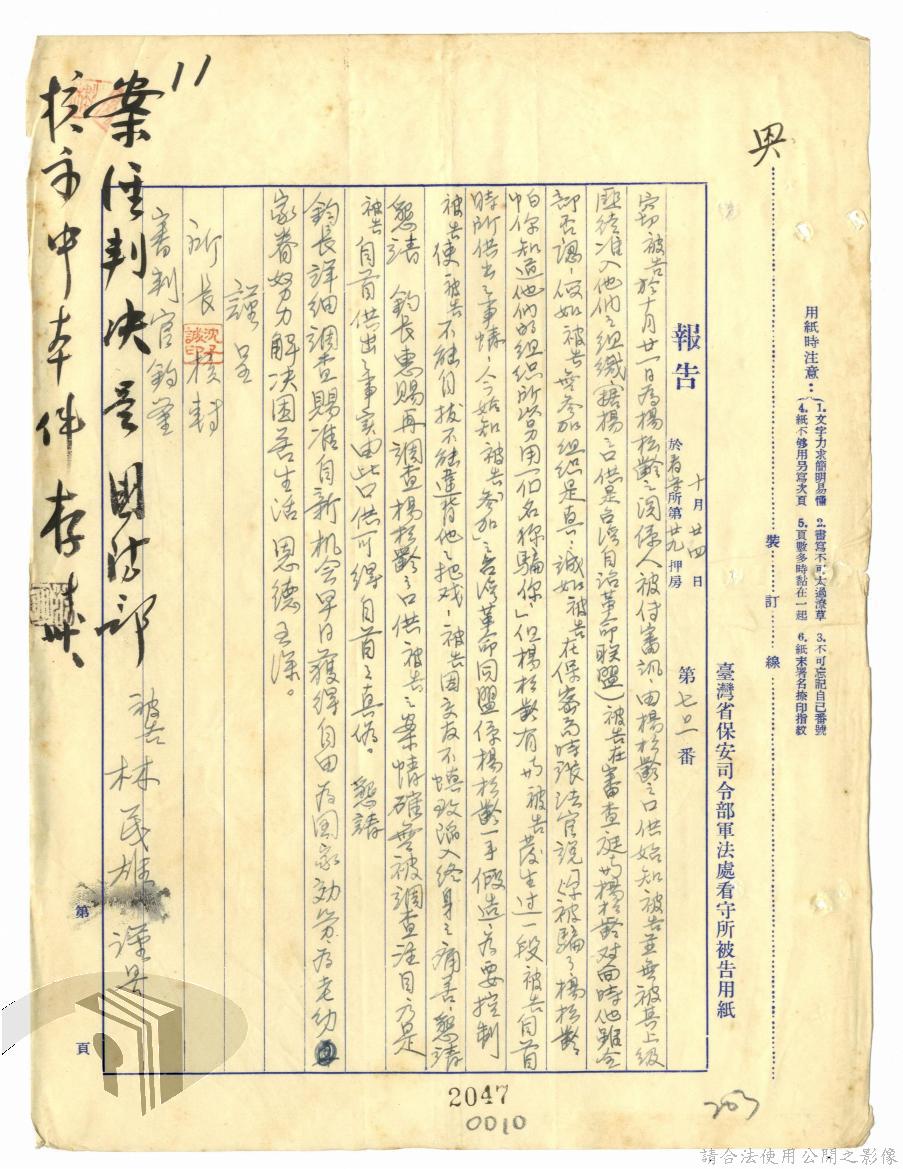 用紙時注意：
1.文字力求簡明易懂　2.書寫不可太過潦草　3.不可忘記自己番號
4.紙不够用另寫次頁　5.頁數多時黏在一起　6.紙末署名捺印指紋
裝訂線
臺灣省保安司令部軍法處看守所被告用紙
報告　十月廿四日　於看守所第廿九押房　第七〇一番
竊被告於十月廿一日為楊松齡之関係人被付審訊，由楊松齡之口供始知被告並無被其上級
匪徒准入他們之組織（據楊之口供是台湾自治革命联盟）被告在審查庭與楊松齡对面時他雖全
部否認，假如被告無参加組织是真，誠如被告在保密局時張法官説「你被騙了楊松齡
怕你知道他們的組织所以另用一個名称騙你」但楊松齡有與被告發生过一段被告自首
時所供出之事情，今始知被告参加之台湾革命同盟係楊松齡一手假造，為要控制
被告使被告不能自拔不能違背他之把戏　被告因交友不慎致陥入終身之痛苦，懇請
懇請　鈞長惠賜再調查楊松齡之口供被告之案情確無被調查注目方是
被告自首供出之事实由此口供可得自首之真偽。懇請
鈞長詳细調查賜准自新机会早日獲得自由為国家効劳為老幼
家眷努力解决困苦生活　恩德至深。
謹呈
所長核轉
審判官鈞鑒
被告　林民雄　謹呈
11
案經判决呈國防部
核示中本件存
第　頁
2047
0010
請合法使用公開之影像